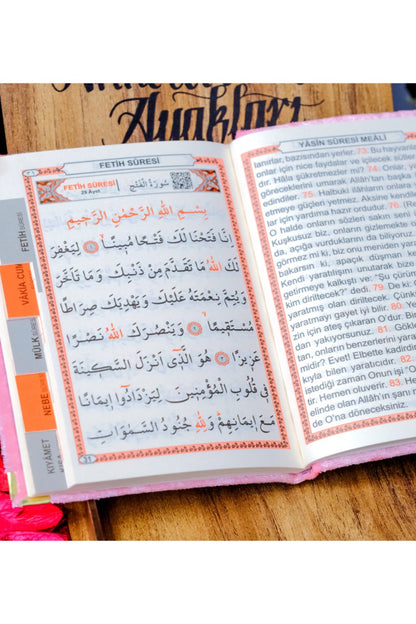 Ayakları
FETİH SÛRESİ
FETİH SÛRESİ
29 Ayet
سُورَةُ الْفَتْحِ
بِسْمِ اللّٰهِ الرَّحْمٰنِ الرَّحٖيمِ
اِنَّا فَتَحْنَا لَكَ فَتْحًا مُبٖينًاۙ ﴿١﴾ لِيَغْفِرَ
لَكَ اللّٰهُ مَا تَقَدَّمَ مِنْ ذَنْبِكَ وَمَا تَاَخَّرَ
وَيُتِمَّ نِعْمَتَهُ عَلَيْكَ وَيَهْدِيَكَ صِرَاطًا
مُسْتَقٖيمًاۙ ﴿٢﴾ وَيَنْصُرَكَ اللّٰهُ نَصْرًا
عَزٖيزًا ﴿٣﴾ هُوَ الَّذٖٓي اَنْزَلَ السَّكٖينَةَ
فٖي قُلُوبِ الْمُؤْمِنٖينَ لِيَزْدَادُٓوا اٖيمَانًا
مَعَ اٖيمَانِهِمْ وَلِلّٰهِ جُنُودُ السَّمٰوَاتِ
31
FETİH SÛRESİ
VÂKİA CUM
MÜLK SÛRESİ
NEBE
KIYÂMET
YÂSİN SÛRESİ MEÂLİ
lanırlar, bazısından yerler. 73. Bu hayvan
onlar için nice faydalar ve içilecek sütler
dır. Hâla şükretmezler mi? 74. Onlar, All
göreceklerini umarak, Allah'tan başka
edindiler. 75. Halbuki ilâhların onlara
etmeye güçleri yetmez. Aksine kendi
ler için yardıma hazır ordudur. 76. (R
O halde onların sözleri sakın seni ü
Kuşkusuz biz, onların gizlemekte
da, açığa vurduklarını da biliyoruz.
görmez mi ki, biz onu nerminden ya
bakarsın ki, apaçık düşman kes
Kendi yaratılışını unutarak bize
getirmeye kalkıştı ve: "Şu çürüm
kim diriltecek?" dedi. 79. De ki: O
yaratmış olan diriltecek. Çünkü
yaratmayı gayet iyi bilir. 80.
zin için ateş çıkaran O'dur.
dan yakıyorsunuz. 81. Gökleri
tan, onların benzerlerini yarat
midir? Evet! Elbette kadirdir
kıyla bilen yaratıcıdır. 82.
istediği zaman Onun işi "O
tir. Hemen oluverir. 83.
elinde olan Allah'ın şanı
de O'na döneceksiniz.